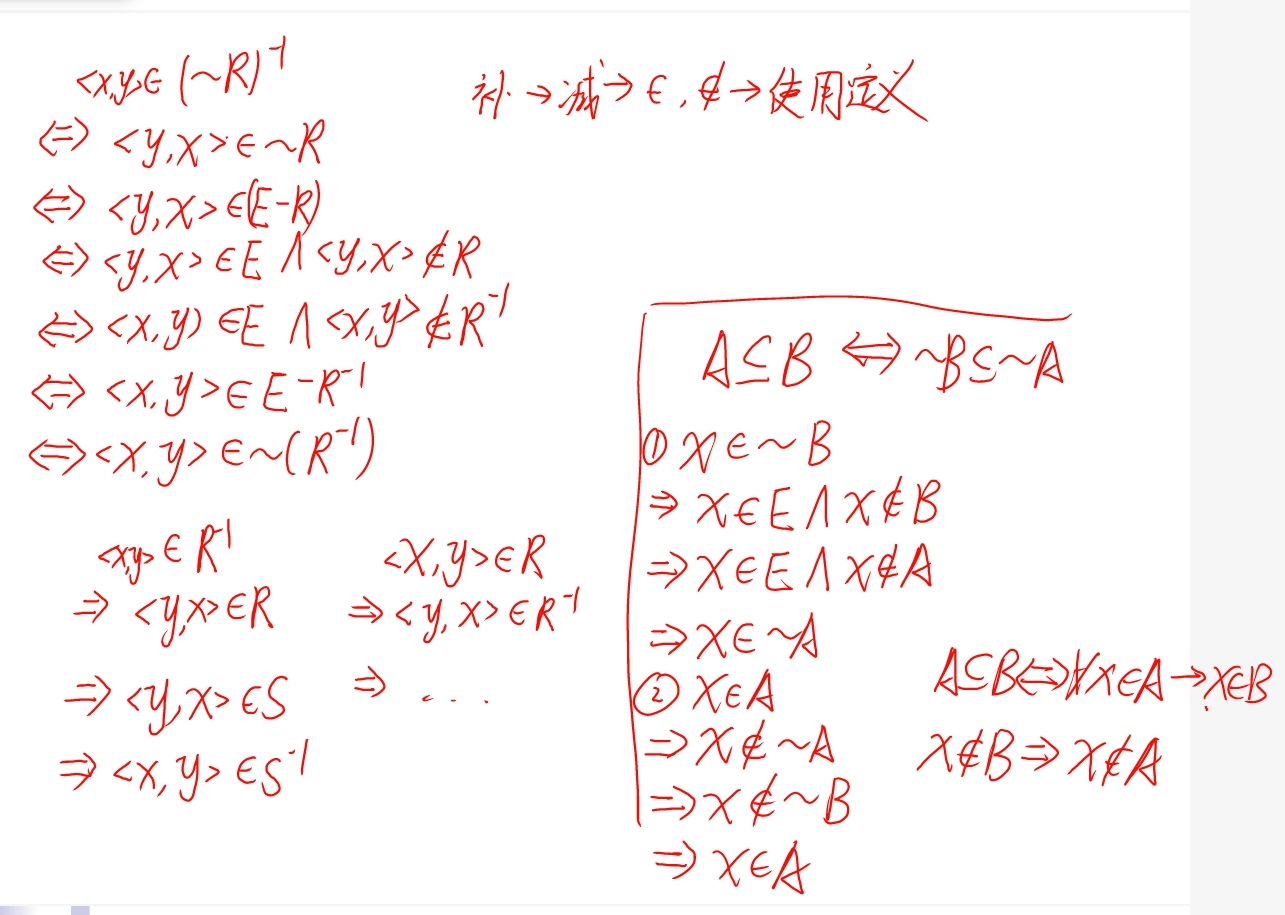 <x,y>∈(~R)⁻¹
⇔ <y,x>∈~R
⇔ <y,x>∈(E-R)
⇔ <y,x>∈E∧<y,x>∉R
⇔ <x,y)∈E∧<x,y>∉R⁻¹
⇔ <x,y>∈E-R⁻¹
⇔ <x,y>∈~(R⁻¹)
补→减→∈,∉→使用定义
<x,y>∈R⁻¹
⇒ <y,x>∈R
⇒ <y,x>∈S
⇒ <x,y>∈S⁻¹
<x,y>∈R
⇒ <y,x>∈R⁻¹
⇒ ....
A⊆B ⇔ ~B⊆~A
① x∈~B
⇒ x∈E∧x∉B
⇒ x∈E∧x∉A
⇒ x∈~A
② x∈A
⇒ x∉~A
⇒ x∉~B
⇒ x∈A
A⊆B⇔∀x∈A→x∈B
x∉B⇒x∉A